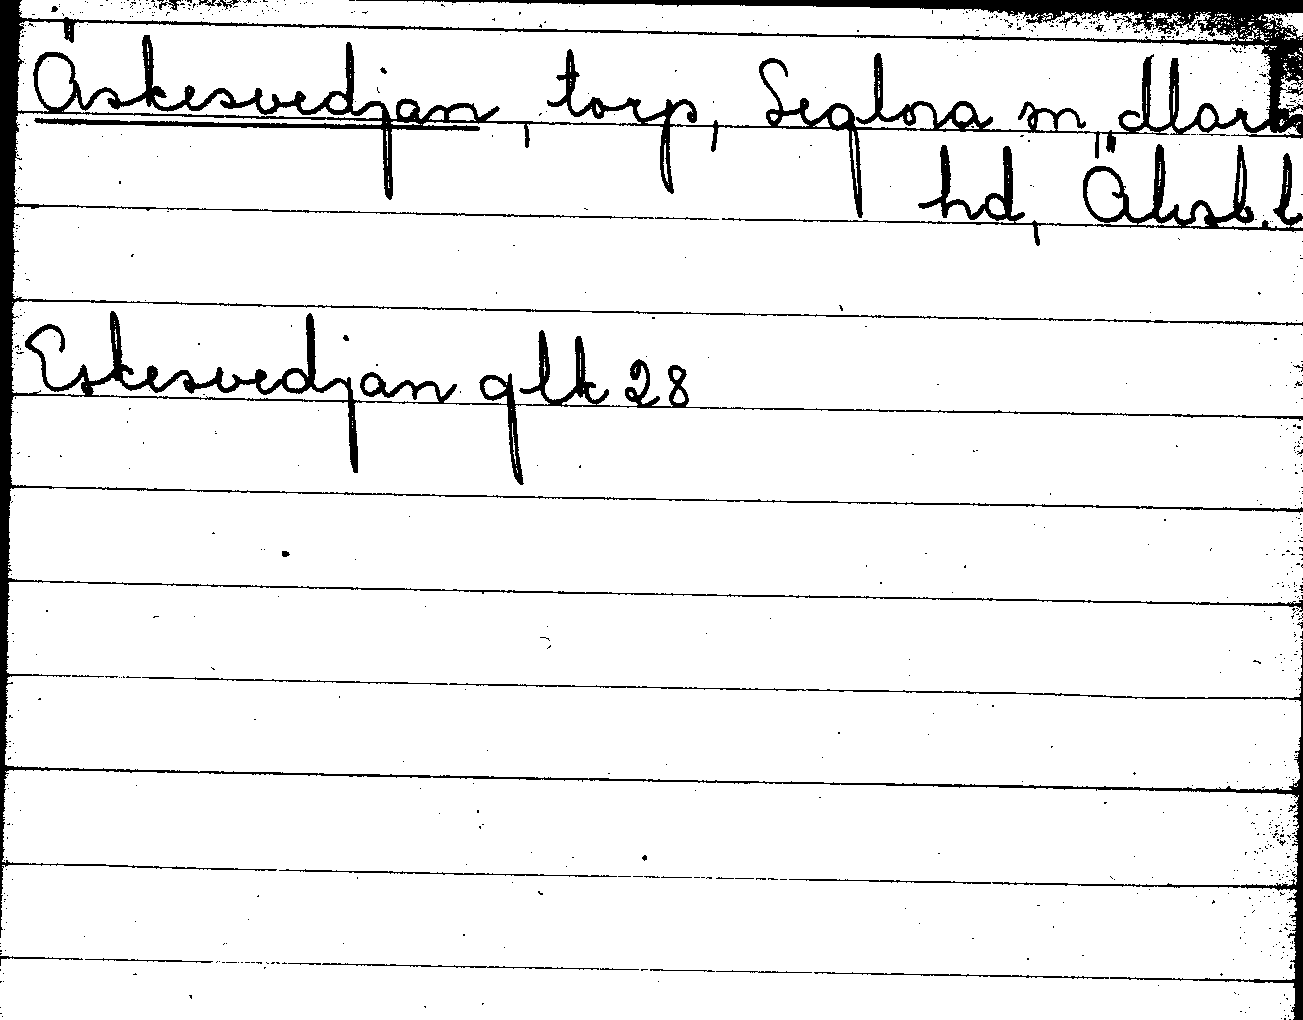 Äskesvedjan, torp, Seglora sn Marks
hd, Älvsb. l
Eskesvedjan glk 28